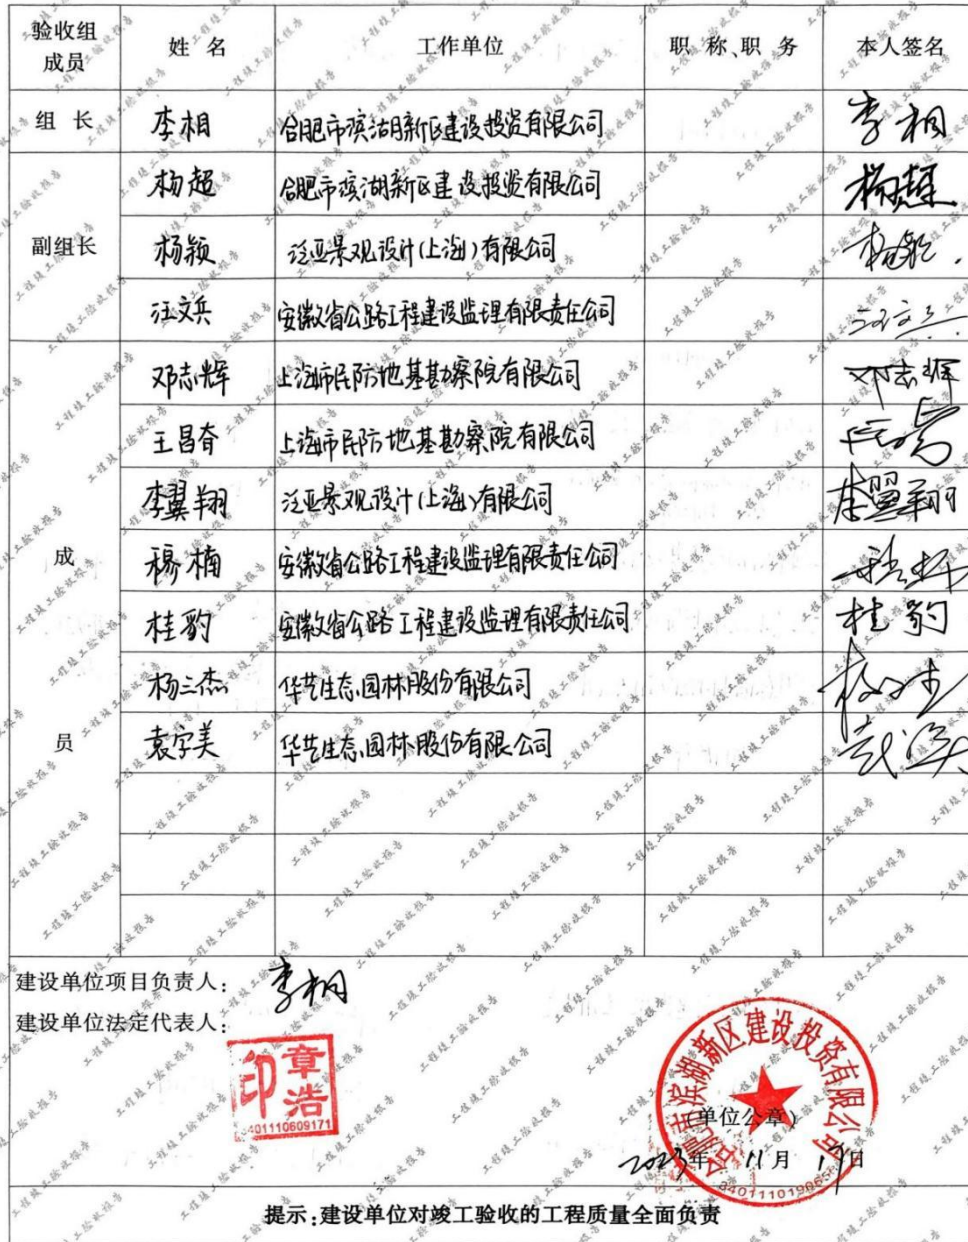 验收组成员 姓名 工作单位 职称、职务 本人签名
组长 李相 合肥市滨湖新区建设投资有限公司 李相
副组长 杨超 合肥市滨湖新区建设投资有限公司 杨超
杨颖 泛亚景观设计(上海)有限公司 杨颖
汪文兵 安徽省公路工程建设监理有限责任公司
成员 邓志辉 上海市民防地基勘察院有限公司 邓志辉
王昌奋 上海市民防地基勘察院有限公司
李翼翔 泛亚景观设计(上海)有限公司 李翼翔
穆楠 安徽省公路工程建设监理有限责任公司
桂豹 安徽省公路工程建设监理有限责任公司 桂豹
杨三杰 华艺生态园林股份有限公司
袁字美 华艺生态园林股份有限公司
建设单位项目负责人: 李相
建设单位法定代表人:
章浩印
3401110609171
合肥市滨湖新区建设投资有限公司
(单位公章)
2023年11月19日
提示:建设单位对竣工验收的工程质量全面负责
工程竣工验收报告